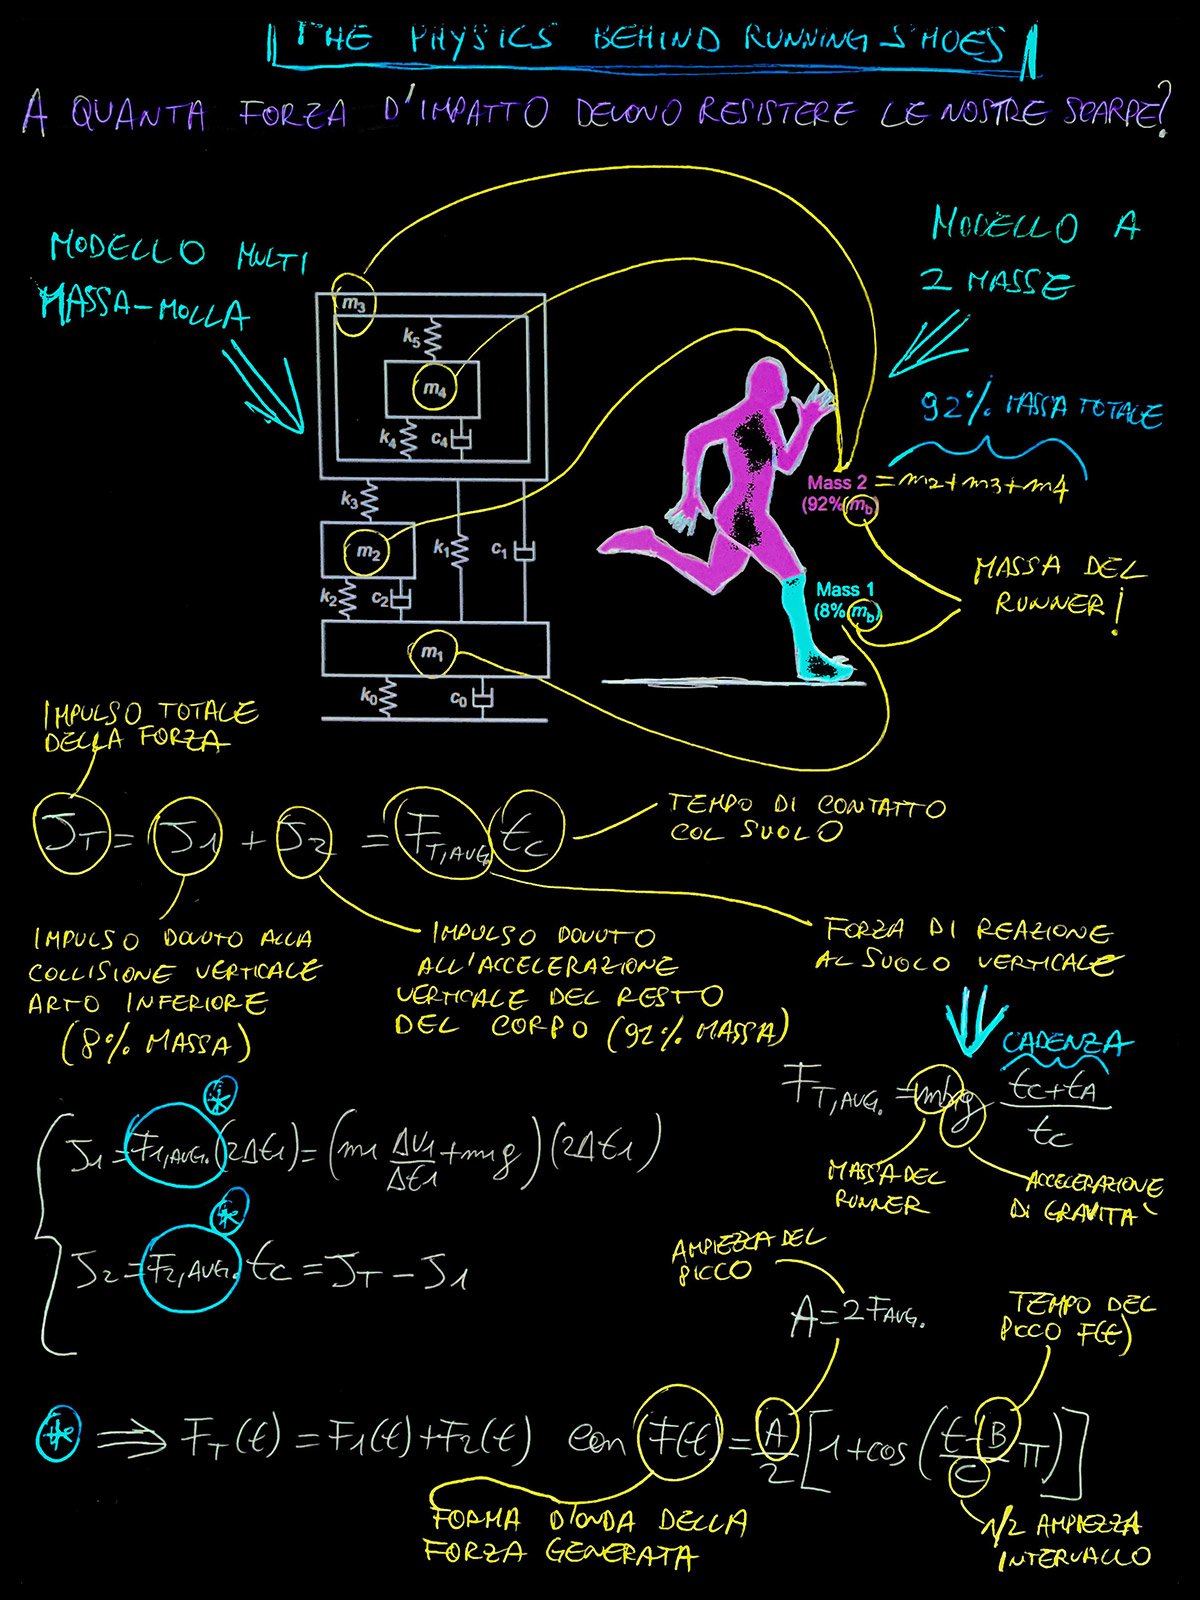 THE PHYSICS BEHIND RUNNING SHOES
A QUANTA FORZA D'IMPATTO DEVONO RESISTERE LE NOSTRE SCARPE?
MODELLO MULTI
MASSA-MOLLA
MODELLO A
2 MASSE
92% MASSA TOTALE
m3
k5
m4
k4
c4
k3
m2
k1
c1
k2
c2
m1
k0
c0
Mass 2 = m2+m3+m4
(92% mb)
Mass 1
(8% mb)
MASSA DEL
RUNNER!
IMPULSO TOTALE
DELLA FORZA
JT = J1 + J2 = FT,AVG. tC
TEMPO DI CONTATTO
COL SUOLO
IMPULSO DOVUTO ALLA
COLLISIONE VERTICALE
ARTO INFERIORE
(8% MASSA)
IMPULSO DOVUTO
ALL'ACCELERAZIONE
VERTICALE DEL RESTO
DEL CORPO (92% MASSA)
FORZA DI REAZIONE
AL SUOLO VERTICALE
CADENZA
FT,AVG. = mb g (tC+tA)/tC
MASSA DEL
RUNNER
ACCELERAZIONE
DI GRAVITÀ
J1 = F1,AVG. (2Δt1) = (m1 Δv1/Δt1 + m1g) (2Δt1)
*
J2 = F2,AVG. tC = JT - J1
*
AMPIEZZA DEL
PICCO
A = 2FAVG.
TEMPO DEL
PICCO F(t)
* ⇒ FT(t) = F1(t) + F2(t) con F(t) = A/2 [1+cos((t-B)/C π)]
FORMA D'ONDA DELLA
FORZA GENERATA
1/2 AMPIEZZA
INTERVALLO